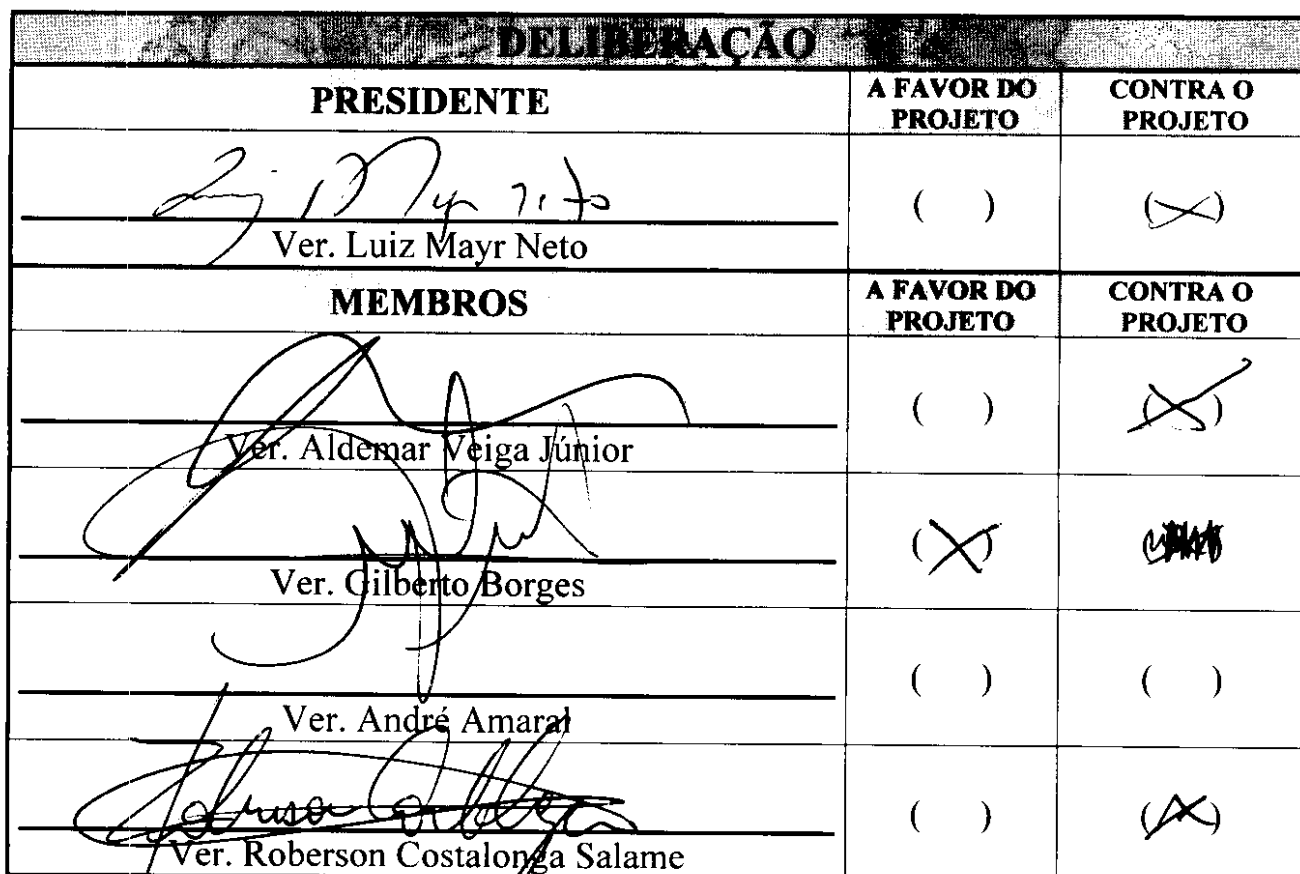 DELIBERAÇÃO
PRESIDENTE
A FAVOR DO
PROJETO
CONTRA O
PROJETO
Ver. Luiz Mayr Neto
( )
(X)
MEMBROS
A FAVOR DO
PROJETO
CONTRA O
PROJETO
Ver. Aldemar Veiga Júnior
( )
(X)
Ver. Gilberto Borges
(X)
Ver. André Amaral
( )
( )
Ver. Roberson Costalonga Salame
( )
(X)